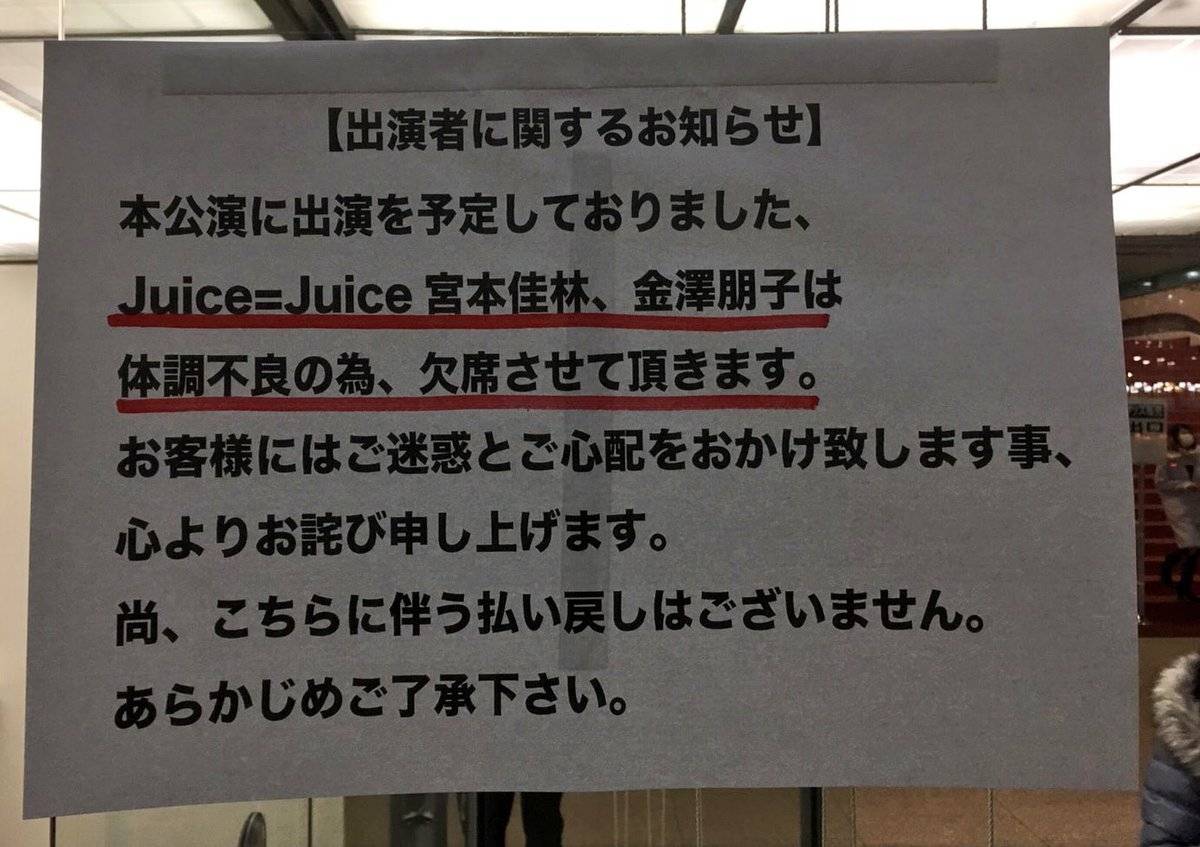 【出演者に関するお知らせ】
本公演に出演を予定しておりました、
Juice=Juice 宮本佳林、金澤朋子は
体調不良の為、欠席させて頂きます。
お客様にはご迷惑とご心配をおかけ致します事、
心よりお詫び申し上げます。
尚、こちらに伴う払い戻しはございません。
あらかじめご了承下さい。